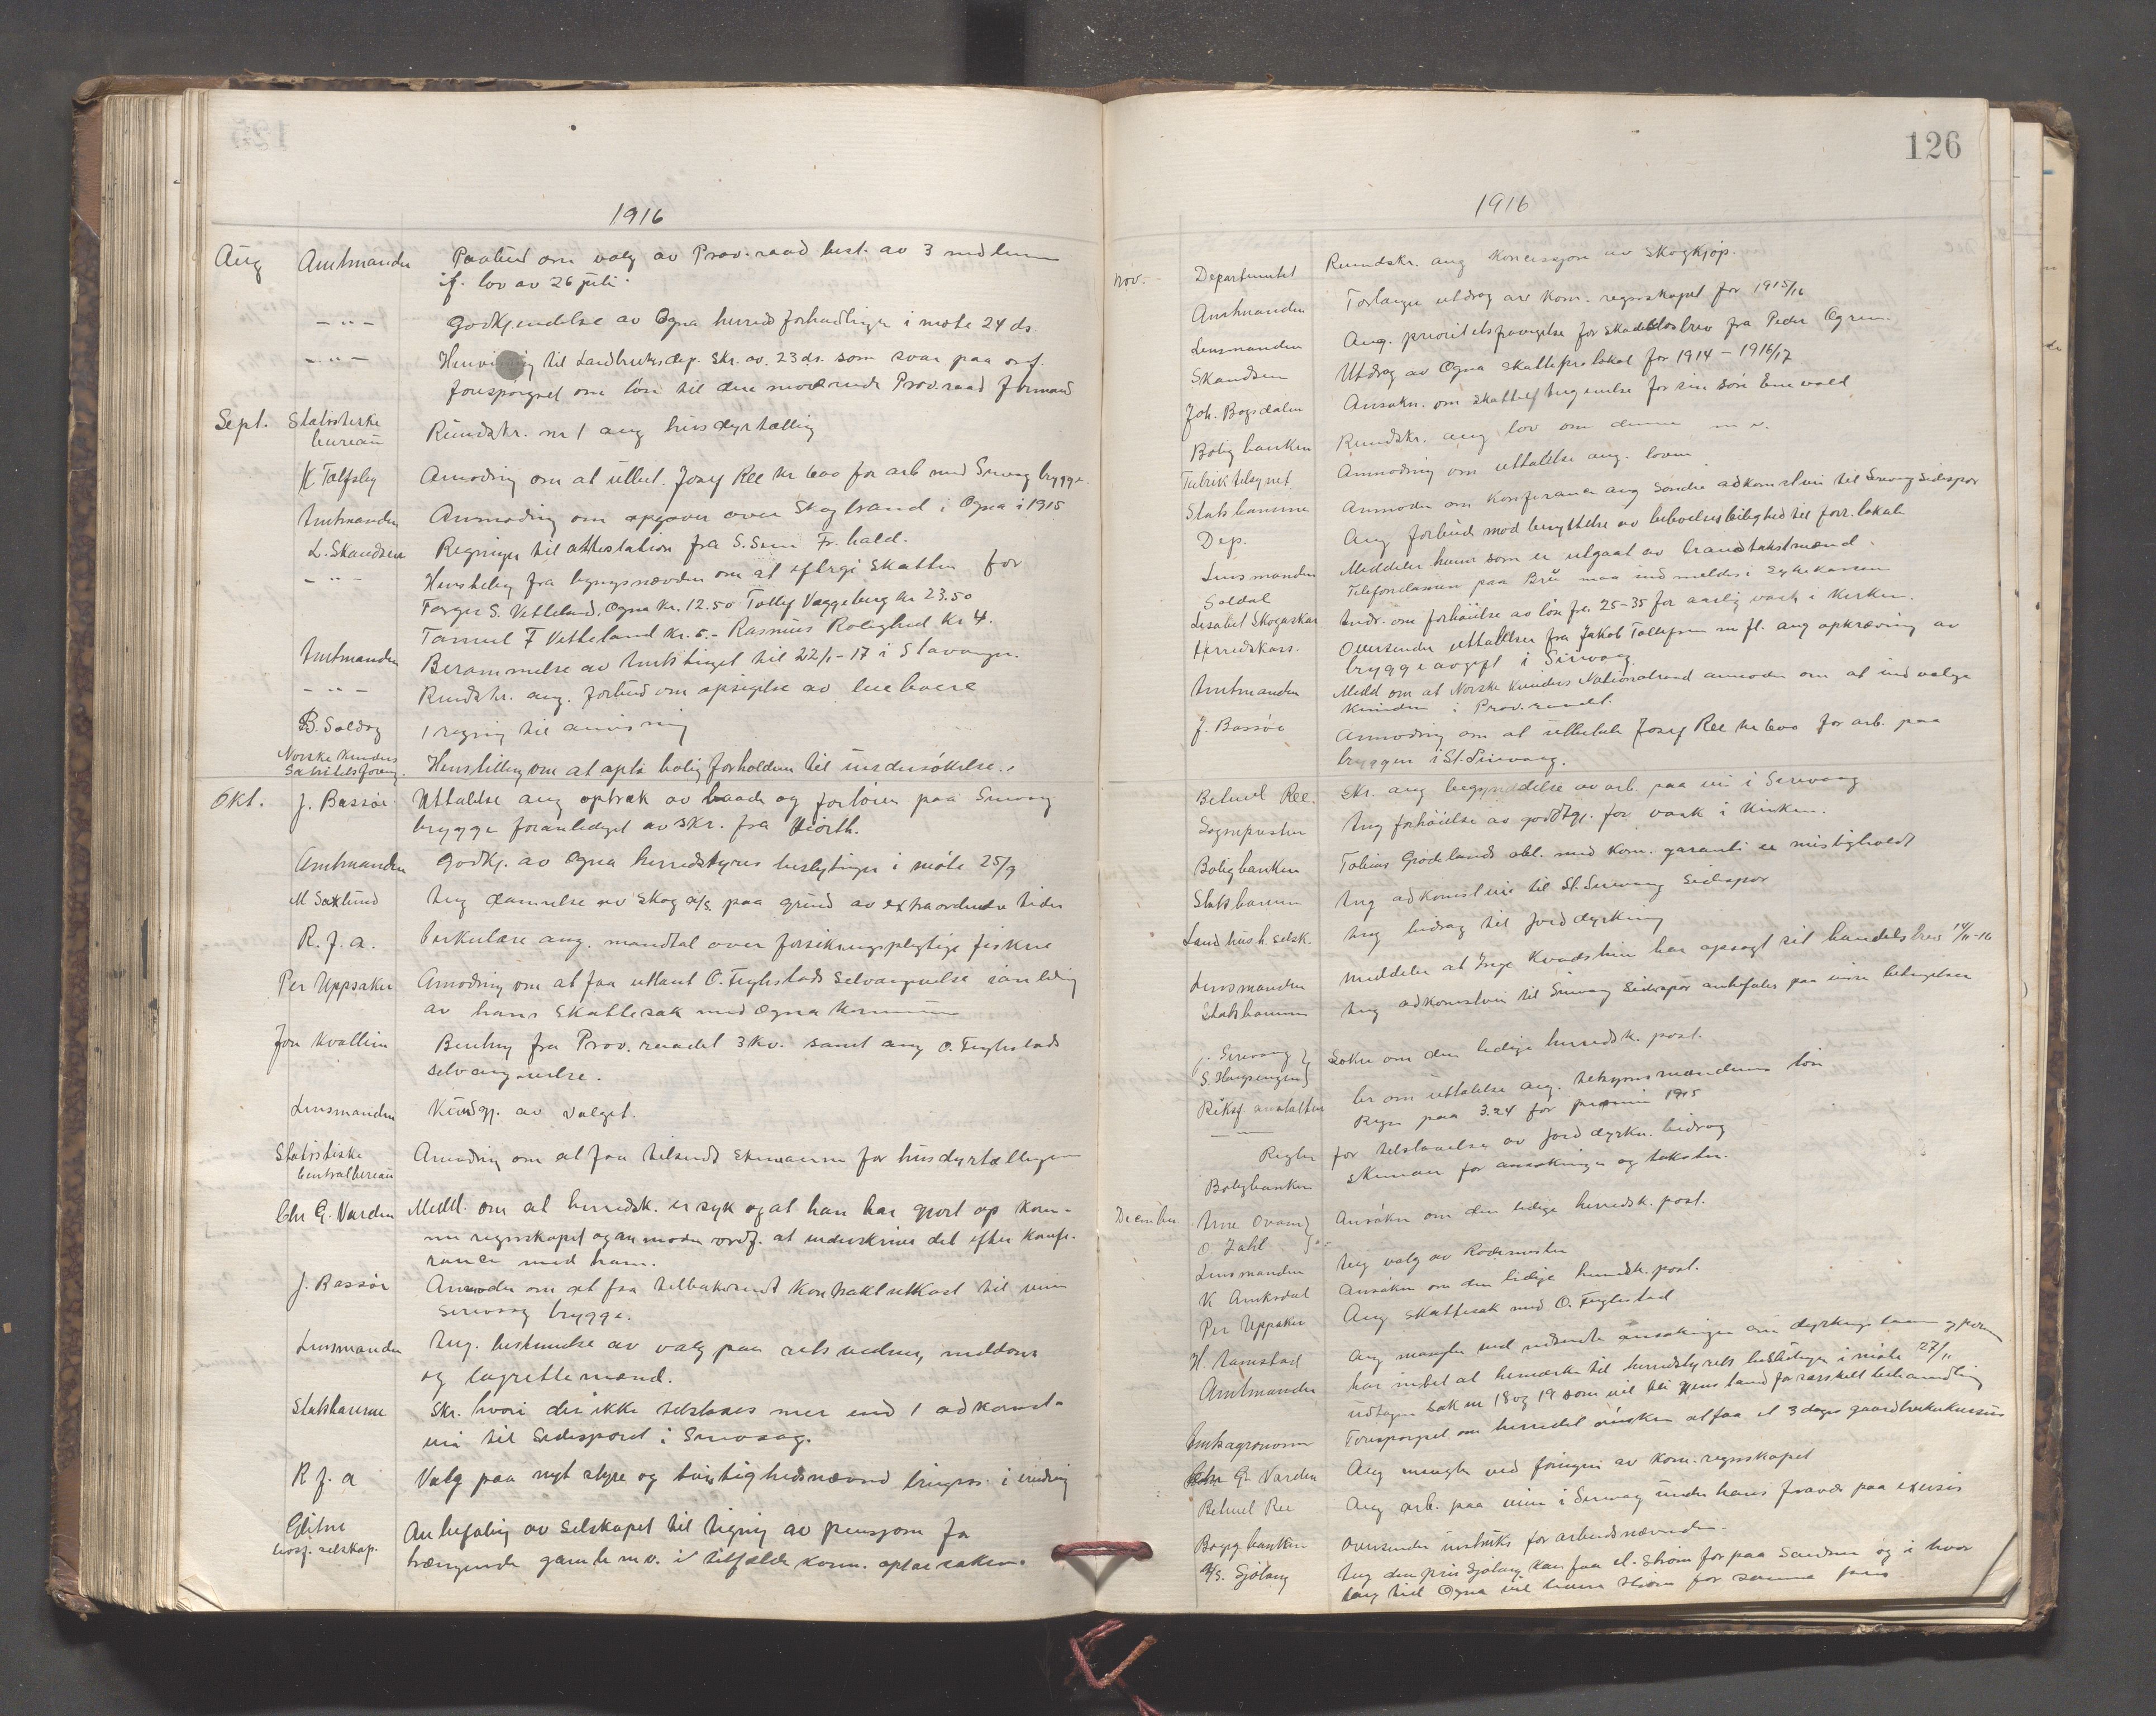 1916
Aug Amtmanden Paabud om valg av Prov.raad best. av 3 medlemmer
if. lov av 26 juli.
– " – Godkjendelse av Ogna herreds forhandlinger i møte 24 ds.
– " – Henvisning til Landbruksdep. skr. av 23 ds. som svar paa
forespørgsel om løn til den nuværende Prov.raad formand
Sept. Statistiske
bureau Rundskr. nr 1 ang husdyrtælling
Amodning om at utbet. Josef Ree kr 600 for arb med Sirevaag brygge.
Amtmanden Anmodning om opgaver over Skogbrand i Ogna i 1915
L. Skandsen Regninger til attestation fra S. Sem Fr. hald.
– " – Henstilling fra ligningsnævnden om at eftergi skatten for
S. Vetteland, Ogna kr. 12.50 Tollef Vaggeberg kr 23.50
F Vetteland kr. 5.– Rasmus Rolighed kr 4.
Amtmanden Berammelse av Amtstinget til 22/1–17 i Stavanger.
– " – Rundskr. ang. forbud om opsigelse av leieboere
B. Soldog 1 regning til anvisning
Norske Kvinders
Sanitetsforeng. Henstilling om at opta boligforholdene til undersøkelse.
Okt. J. Bassøe Uttalelse ang optræk av baade og fortøien paa Sirevaag
brygge foranlediget av skr. fra Hiorth.
Amtmanden Godkj. av Ogna herredstyres beslutninger i møte 25/9
M Saxlund Ang dannelse av skog a/s. paa grund av extraordinære tider
R. f. a. Cirkulære ang. mandtal over forsikringspligtige fiskere
Per Uppsaker Amodning om at faa utlaant O. Fuglestads Selvangivelse i anledning
av hans Skattesak med Ogna kommune
Jon Kvallien fra Prov. raadet 3 kv. samt ang O. Fuglestads
selvangivelse.
Lensmanden Kundgj. av valget.
Statistiske
Centralbureau Amodning om at faa tilsendt skemaerne for husdyrtællingen
Chr G. Varden Medd. om at herredsk. er syk og at han har gjort op kom-
mune regnskapet og anmoder ordf. at underskrive det efter konfe-
rance med ham.
J. Bassøe Anmoder om at faa tilbakesendt kontraktutkast til
Sirevaag brygge.
Lensmanden Ang. bestemmelse av valg paa retsvidner, meddoms
og lagrettemænd.
Statsbanerne Skr. hvori der ikke tilstaaes mer end 1 adkomst-
vei til Sidesporet i Sirevaag.
R f. a Valg paa nyt styre og tvistighedsnævnd i
Glitne
livsf. selskap. Anbefaling av Selskapet til tegning av pensjon for
trængende gamle m.v. i tilfælde kom. optar saken.
126
1916
Nov. Departementet Rundskr. ang koncession av Skogkjøp.
Amtmanden Forlanger utdrag av kom. regnskapet for 1915/16
Lensmanden Ang. prioritetsfravigelse for skadesløsbrev fra Peder Ogren
Skandsen Utdrag av Ogna skatteprotokol for 1914–1916/17
Joh. Bogsdalen Ansøkn. om skattefritagenelse for sin søn Enevald
Boligbanken Rundskr. ang lov om denne m v.
Anmodning om uttalelse ang. loven
Statsbanerne Anmoder om konferance ang søndre adkomstvei til Sirevaag Sidespor
Dep. Ang forbud mod benyttelse av beboelsesleilighed til forr. lokale
Lensmanden Meddeler hvem som er utgaat av brandtakstmænd.
Soldal Telefondamen paa Bru maa indmeldes i Sykekassen
Lisabet Skogaskar Andr. om forhøielse av løn fra 25–35 for aarlig vask i kirken.
Herredskass. Oversender uttalelser fra Jakob Tollefsen m fl. ang opkrævning av
bryggeavgift i Sirevaag.
Amtmanden Medd om at Norske Kvinders Nationalraad anmoder om at indvælge
kvinder i Prov.raadet.
J. Bassøe Anmodning om at utbetale Josef Ree kr 600 for arb. paa
bryggen i St. Sirevaag.
Betuel Ree. Skr. ang begyndelse av arb. paa vei i Sirevaag
Sognepresten Ang forhøielse av godtgj. for vask i kirken.
Boligbanken Tobias Grødelands obl. med kom. garanti er misligholdt
Statsbanerne Ang adkomstvei til St. Sirevaag Sidespor
Landhush. selsk. Ang bidrag til jorddyrkning
Lensmanden Meddeler at Inge Kvadsheim har opsagt sit handelsbrev 14/11–16
Statsbanerne Ang adkomstvei til Sirevaag Sidespor anbefales paa visse betingelser
Sirevaag }
Søker om den ledige herredsk. post.
Riksf. anstalten ber om uttalelse ang. tilsynsmændenes løn
– " – Regn paa 3.24 for præmie 1915
Regler for tilstaaelse av jorddyrkn. bidrag
Boligbanken Skemaer for ansøkninger og takster.
December Arne
O. Jahl Ansøker om den ledige herredsk. post.
Lensmanden Ang valg av Rodemester
K Anksdal Ansøker om den ledige herredsk. post.
Per Uppsaker Ang skattesak med O. Fuglestad
H. Aanestad Ang mangler ved indsendte ansøkninger om dyrkingslaan
Amtmanden har intet at bemerke til herredstyrets beslutninger i møte 27/11
undtagen sak nr 18 og 19 som vil bli gjenstand for særskilt behandling
Amtsagronomen Forespørgsel om herredet ønsker at faa et 3 dages gaardbrukerkursus
Chr G. Varden Ang mangler ved føringen av kom. regnskapet
Betuel Ree Ang arb. paa veien i Sirevaag under hans fravær paa exersis
Boligbanken Oversender instruks for arbeidsnævnden.
A/s. Sjølang Ang den pris Sjølang kan faa el. strøm for paa Sandnes og i hvor
lang tid Ogna vil levere strøm for samme pris